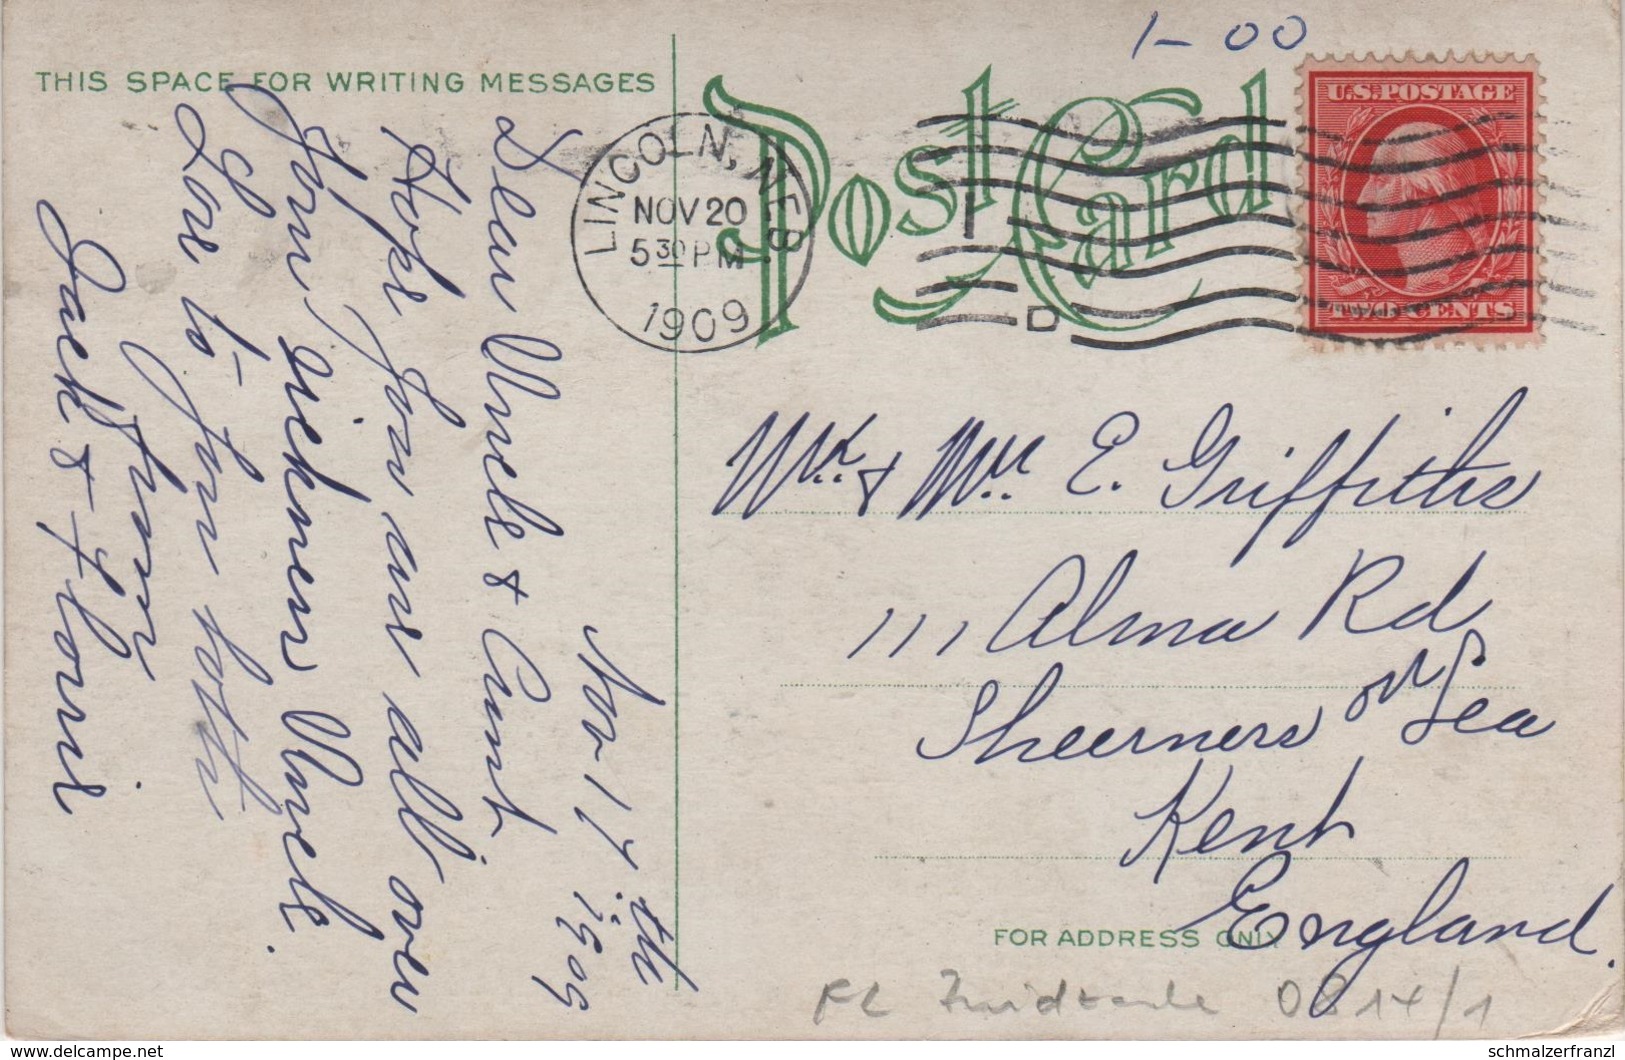 1-00
THIS SPACE FOR WRITING MESSAGES
Post Card
U.S. POSTAGE
TWO CENTS
LINCOLN, NEB.
NOV 20
5 30 PM
1909
D
Nov 17th
1909
Dear Uncle & Aunt
Hope you are all over
your sicknes Uncle.
Love to you both
from
Jack & Florrie
Mr. & Mrs. E. Griffiths
111 Alma Rd
Sheerness on Sea
Kent
England.
FOR ADDRESS ONLY
delcampe.net
schmalzerfranzl